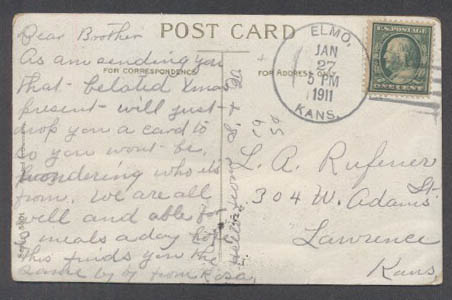 POST CARD
FOR CORRESPONDENCE
FOR ADDRESS ONLY
ELMO,
JAN
27
5 PM
1911
KANS.
U.S. POSTAGE
ONE CENT
Dear Brother
As am sending you
that belated Xmas
present will just
drop you a card to
so you won't be
wondering who its
from. We are all
well and able for
3 meals a day hope
this finds you the
same by by from Rosa
L. A. Rufener
304 W. Adams St.
Lawrence
Kans